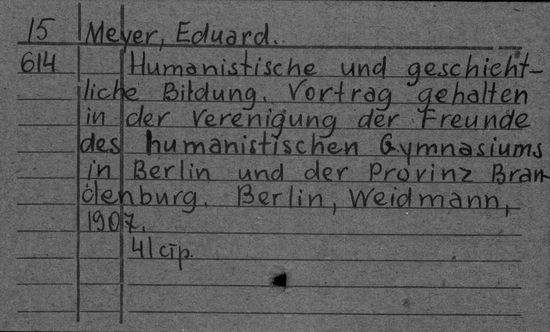 15 Meyer, Eduard.
614 Humanistische und geschicht-
liche Bildung. Vortrag gehalten
in der Verenigung der Freunde
des humanistischen Gymnasiums
in Berlin und der Provinz Bran-
denburg. Berlin, Weidmann,
1907.
41 стр.